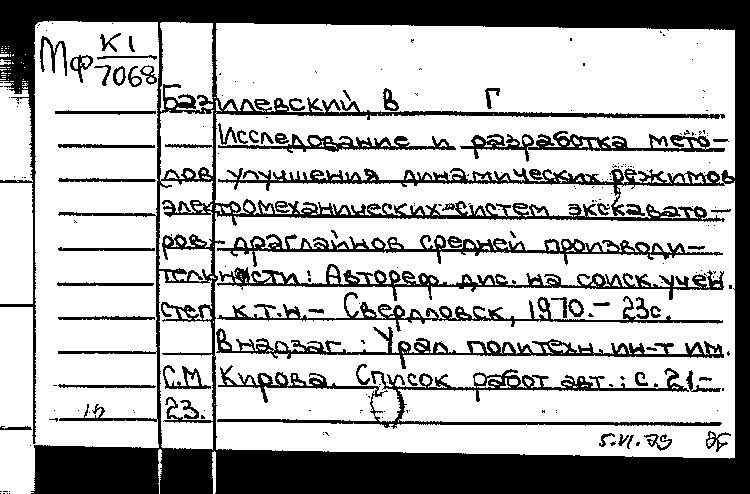 Мф К1
7068
Базилевский, В Г
Исследование и разработка мето-
дов улучшения динамических режимов
электромеханических систем экскавато-
ров-драглайнов средней производи-
тельности: Автореф. дис. на соиск. учен.
степ. к.т.н.- Свердловск, 1970.- 23с.
В надзаг.: Урал. политехн. ин-т им.
С.М Кирова. Список работ авт.: с. 21-
23.
5.VI.79